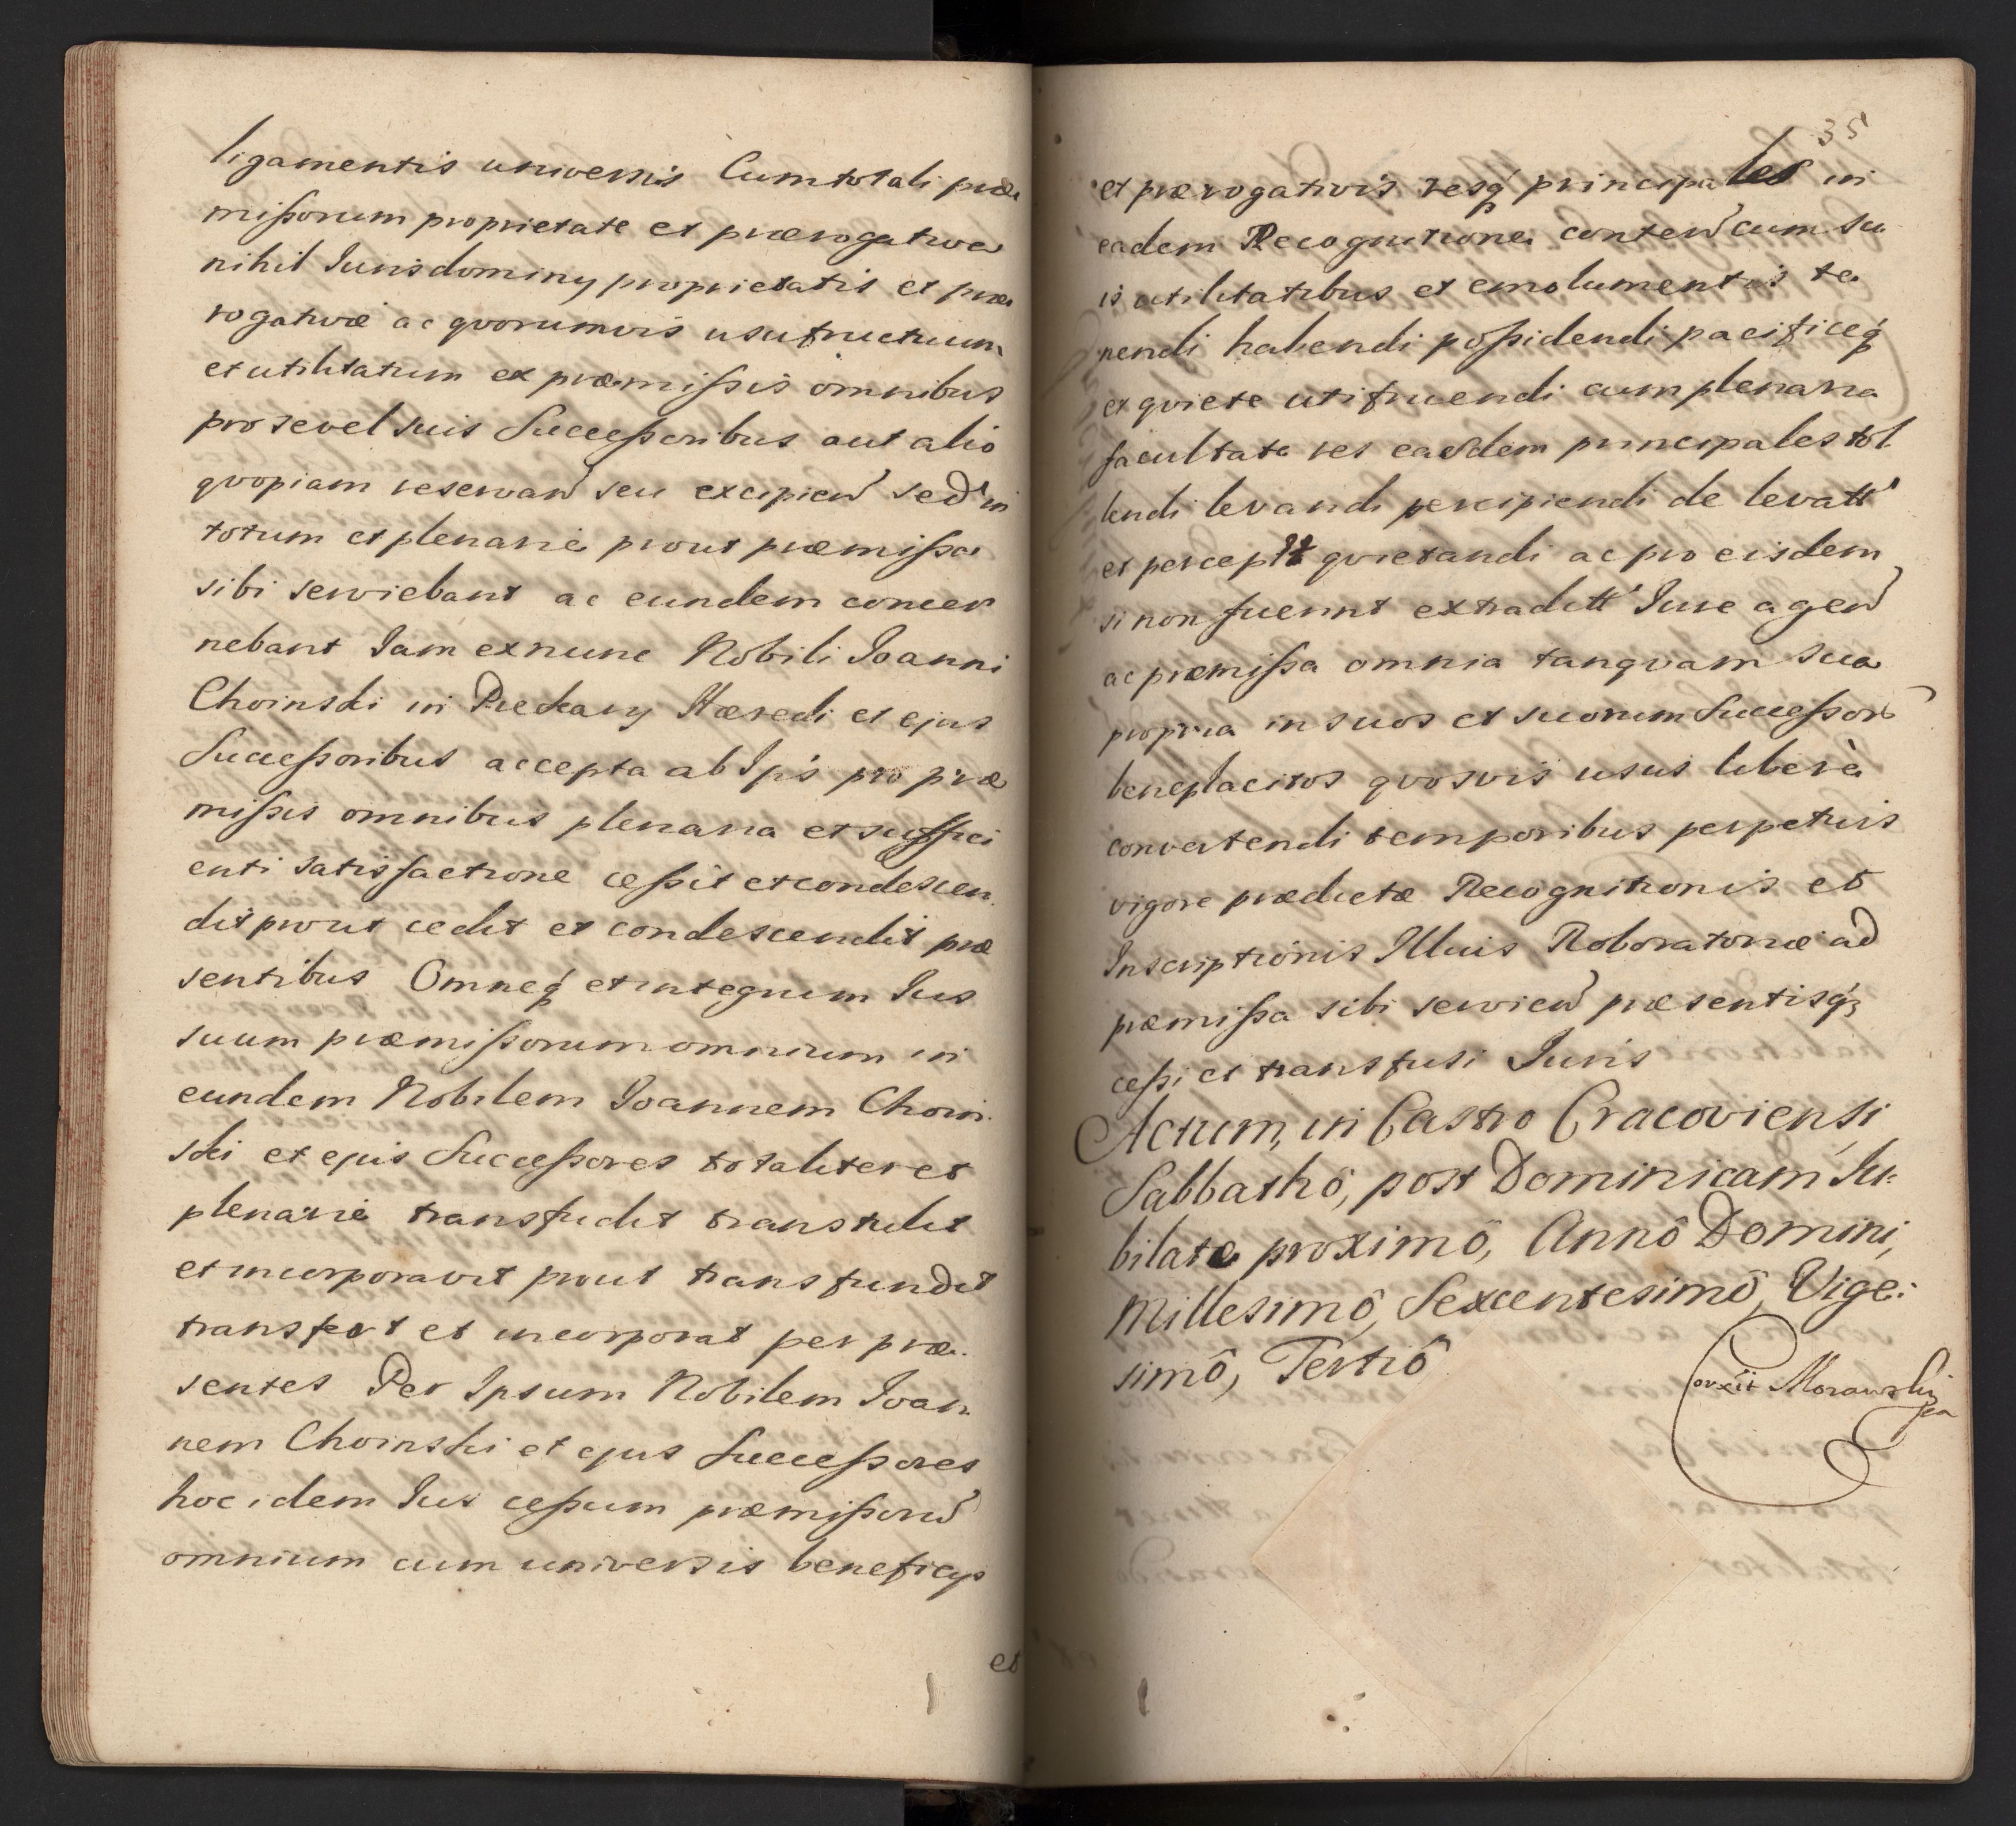 ligamentis universis Cum totali præ
mißorum proprietate et prærogativa
nihil Iuris dominy proprietatis et præ
rogativæ ac qvorumvis usufructuum
et utilitatum ex præmißis omnibus
pro se vel suis Succeßoribus aut alio
qvopiam reservan̄ seu excipien̄ sed in
totum et plenarie prout præmißa
sibi serviebant ac eundem concer
nebant Iam ex nunc Nobili Ioanni
Choinski in Hæredi et ejus
Succeßoribus accepta ab Ipis pro præ
mißis omnibus plenaria et suffici
enti satisfactione ceßit et condescen
dit prout cedit et condescendit præ
sentibus Omneq́ et integrum Ius
suum præmißorum omnium in
eundem Nobilem Ioannem Choin
ski et ejus Succeßores totaliter et
plenarie transfudit transtulit
et incorporavit prout transfundit
transfert et incorporat per præ
sentes Per Ipsum Nobilem Ioan
nem Choinski et ejus Succeßores
hoc idem Ius ceßum præmißorū
omnium cum universis beneficys
et
35
et prærogativis resq́ principales in
eadem Recognitione conten̄ cum su
is utilitatibus et emolumentis te
nendi habendi poßidendi pacificeq́
et qviete utifruendi cum plenaria
facultate res easdem principales tol
lendi levandi percipiendi de levatt
et perceptt qvietandi ac pro eisdem
si non fuerint extraditt Iure agen̄
ac præmißa omnia tanqvam sua
propria in suos et suorum Succeßor̄
beneplacitos qvosvis usus liberè
convertendi temporibus perpetuis
vigore prædictæ Recognitionis et
Inscriptionis Illius Roboratoriæ ad
præmißa sibi servien̄ præsentisq́
ceßi et transfusi Iuris
Actum, in Castro Cracoviensi
Sabbathô, post Dominicam Iu-
bilate proximô, Annô Domini,
Millesimô, Sexcentesimô, Vige:
simô, Tertiô
Corexit Morawski